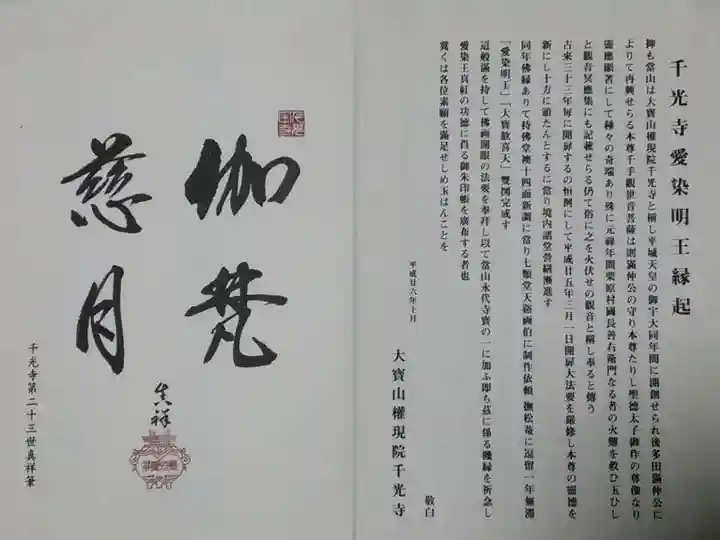 千光寺愛染明王縁起
抑も當山は大寶山權現院千光寺と稱し平城天皇の御宇大同年間に開創せられ後多田滿仲公に
よりて再興せらる本尊千手觀世音菩薩は則滿仲公の守り本尊たりし聖德太子御作の尊像なり
靈應顯著にして種々の奇瑞あり殊に元祿年間栗原村國長善右衞門なる者の火難を救ひ玉ひし
と觀音冥應集にも記載せらる仍て俗に之を火伏せの觀音と稱し奉ると傳う
古來三十三年毎に開扉するの恒例にして平成廿五年三月一日開扉大法要を嚴修し本尊の靈德を
新にし十方に頒たんとするに當り境内諸堂營繕漸進す
同年佛縁ありて持佛堂襖十四面新調に當り七類堂天谿画伯に制作依頼 撫松菴に逗留一年無濁
「愛染明王」「大寶歓喜天」雙図完成す
這般滿を持して佛画開眼の法要を奉拜し以て當山永代寺寶の一に加ふ即ち茲に係る機縁を祈念し
愛染王真紅の功德に肖る御朱印帳を廣布する者也
冀くは各位素願を滿足せしめ玉はんことを
平成廿六年十月
大寶山權現院千光寺
敬白
伽梵
慈月
真祥
千光寺第二十三世真祥筆